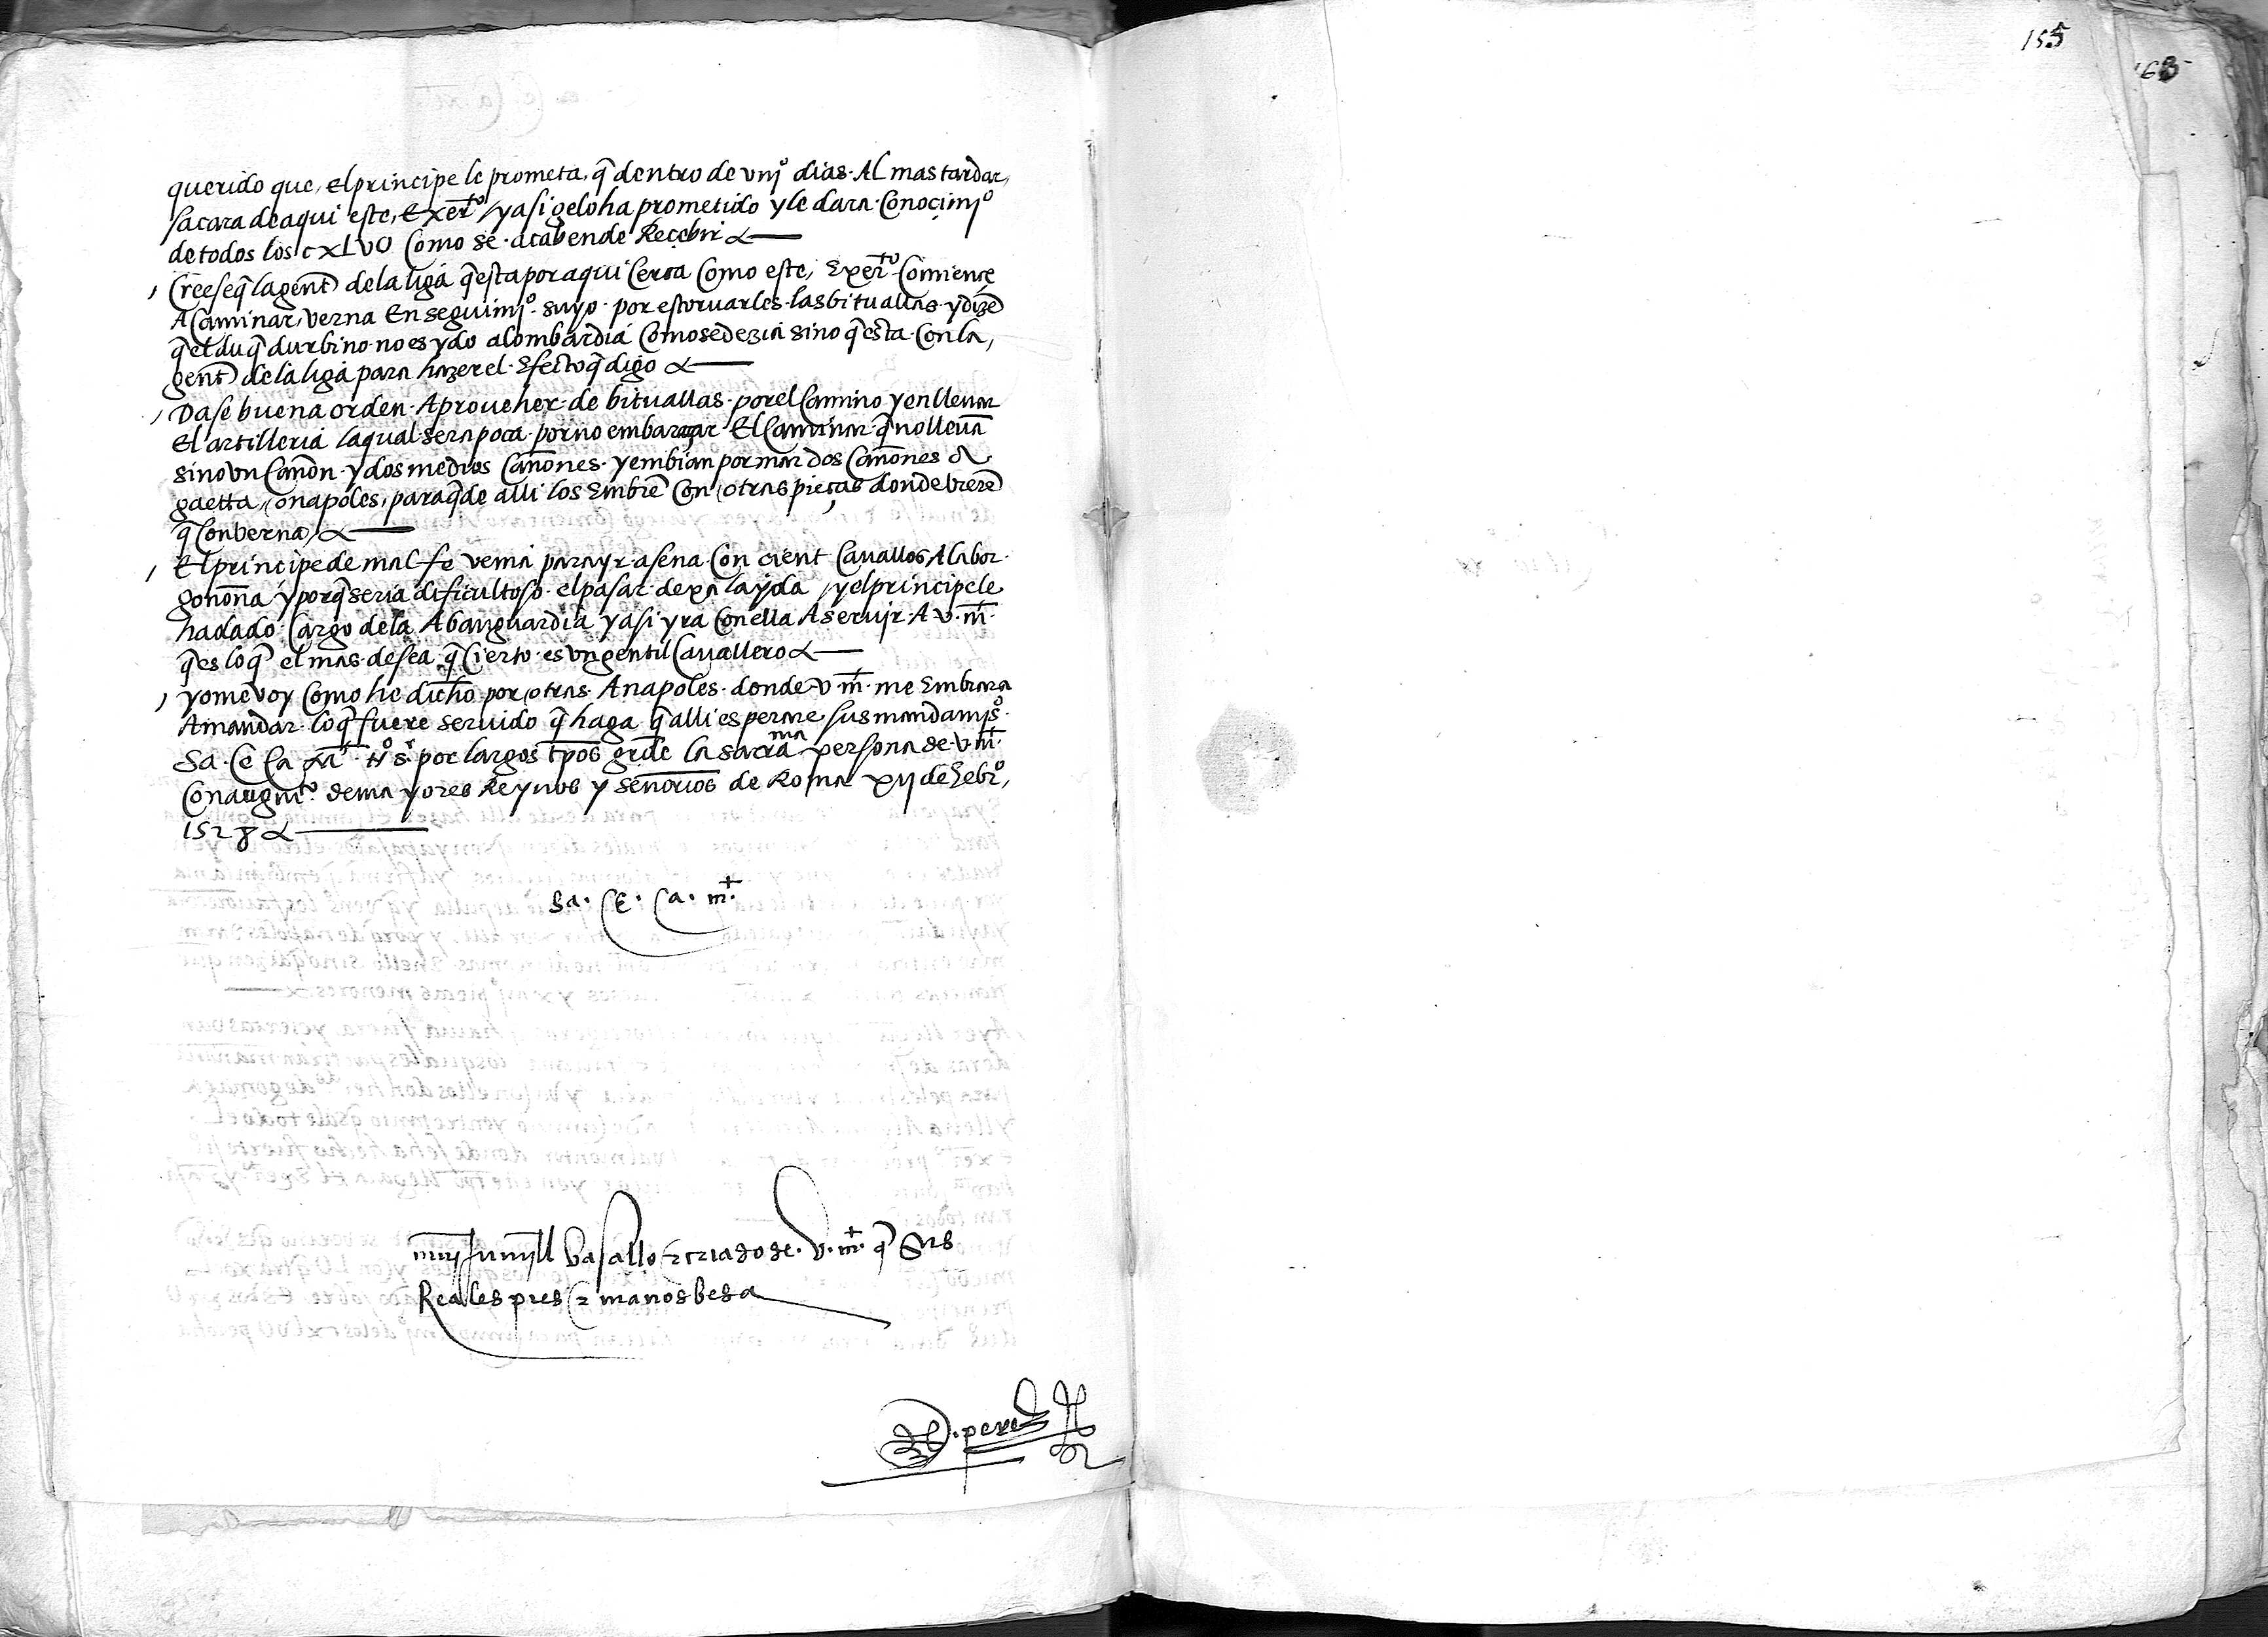 querido que, el principe le prometa, q̃ dentro de viijº dias. Al mas tardar,
sacara de aqui este, Exerᵗº / y asi gelo ha prometido y le dara. Conocimjº
de todos los cxLv0 Como se. acaben de Reçebir
, Creese q̃ la gent̃ de la liga q̃ esta por aqui Cerca Como este, Exerᵗº Comiençe
A Caminar, verna En seguimjº. suyo. por estoruarles. las bituallas. y dizẽ
q̃ el duq̃ durbino. no es ydo a lombardia Como se dezia sino q̃ esta. Con la,
gent̃ de la liga para hazer el. Efecto q̃ digo
, Dase buena orden. A proueher. de bituallas. por el Camino y en lleuar
El artilleria la qual. sera poca. por no embaraçar El Caminar. q̃ no lleuã
sino vn Cañon. y dos medios Cañones. y embian por mar dos Cañones de
gaetta, o napoles, para q̃ de alli los Embiẽ Con otras pieças donde vierẽ
q̃ Converna
, El principe de malfe venia para yr. a sena. Con cient Cauallos A la bor.
goñona y porq̃ seria dificultoso. el pasar. dexa la yda / y el principe le
ha dado Cargo de la Abanguardia y asi yra Con ella A seruir. A v. mᵗ.
q̃ es lo q̃ el mas. desea. q̃ Cierto. es vn gentil Cauallero
, yo me voy Como he dicho por otras. A napoles. donde v. mᵗ. me Embiara
A mandar. lo q̃ fuere seruido q̃ haga q̃ alli esperare sus mandamjºs.
Sa. Ce. Ca. mᵗ. nº sʳ. por largos tpos grde la sacraᵐᵃ persona de. v. mᵗ.
Con augmᵗº. de mayores Reynos y señorios de Roma xij de hebrº,
1528
Sa. Ce. Ca. mᵗ.
muy humjll basallo z criado de. v. mᵗ. q̃ sus
Reales pies z manos besa
perez
155